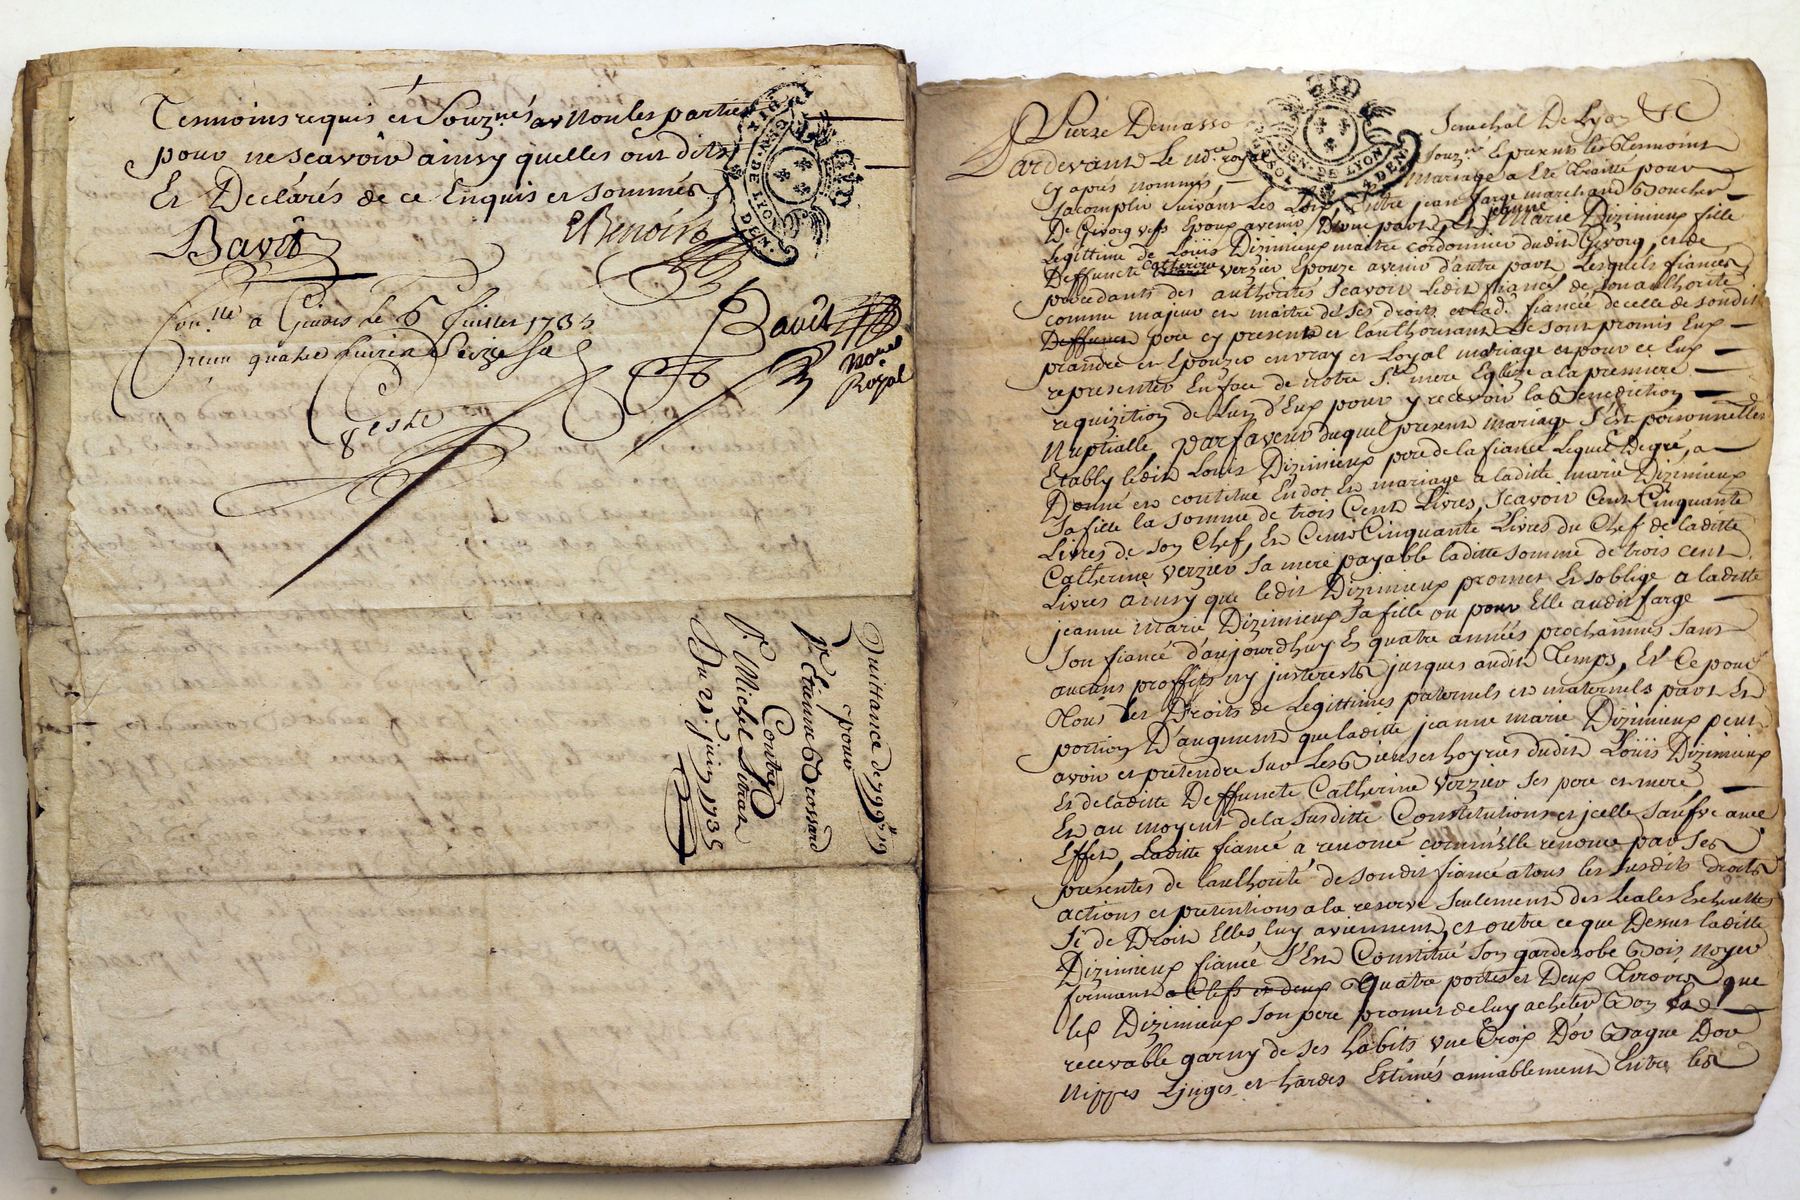 Temoins requis et Souz.nés avnon les parties
pour ne scavoir ainsy quelles ont dits
Et Declarés de ce Enquis et sommés
Bavit
EBenoist
GEN·DE·LYON
DEN.
Con.llé a Givors le 6 Juillet 1735
Receu quatre livres seize s
Bavit
No.re
Royal
Quittance de 199ll 19
pour
Sr. Etienne Brossard
Contre
Sr. Michel
Du 21. juin 1735
Pierre Demasso
Senechal De Lyon &c
GEN·DE·LYON
2 DEN
Pardevant Le No.re royal
Souz.né Et presents les Temoins
Cy après nommés,
mariage a Eté Traitté pour
Sacomplir Suivant Les Loix Entre jean farge marchand Boucher
De Givorg vefs Epoux avenir D'une part, Et jeanne Marie Dizimieux fille
Legittime de Loüis Dizimieux maitre cordonnier dudit Givorg, et de
Deffuncte Catherine Verzier Epouze avenir d'autre part Lesquels fiancés
procedants des authorités Scavoir Ledit fiancé de Son authorité
comme majeur et maitre de Ses droits et lad. fiancée de celle de Sondit
Deffunct pere cy present et lauthorisant Se Sont promis Eux
prandre et Epouzer en vray et Loyal mariage et pour ce Eux
representer En face de notre S.te mere Eglize a la premiere
requizition de Lun d'Eux pour y recevoir la Benediction
Nuptialle, Parfaveur duquel present mariage S'Est personnellem.
Etably ledit Louis Dizimieux pere de la fiancé Lequel De gré, a
Donné et constitué En dot En mariage a laditte marie Dizimieux
Sa fille la Somme de trois Cent Livres, Scavoir Cent Cinquante
Livres de Son Chef, Et Cent Cinquante Livres du Chef de laditte
Catherine Verzier Sa mere payable laditte Somme de trois cent
Livres ainsy que ledit Dizimieux promet Et Soblige a laditte
jeanne Marie Dizimieux Sa fille ou pour Elle audit farge
Son fiancé d'aujourdhuy En quatre années prochaines Sans
aucuns proffits ny jnterests jusques audit Temps, Et Ce pour
Tous Les Droits de Legittimes paternels et maternels part Et
portion D'augment que laditte jeanne marie Dizimieux peut
avoir et pretendre Sur Les Biens et hoyries dudit Loüis Dizimieux
Et de laditte Deffuncte Catherine Verzier Ses pere et mere
Et au moyent de la Susditte Constitution et jcelle Saufve avec
Effet, Laditte fiancé a renoncé comm'Elle renonce par Ses
presentes de lauthorité de Sondit fiancé a tous les Susdits droits
actions et pretentions a la reserve Seulement des Leales Echeuttes
Si de Droit Elles luy aviennent, et outre ce que Dessus laditte
Dizimieux fiancé S'Est Constitué Son garderobe Bois Noyer
fermant a Clefs et deux Quatre portes et Deux Tiroirs que
led. Dizimieux Son pere promet de luy acheter Bon Et
recevable garny de Ses habits vne Croix D'or Bague Dor
Nippes Linges et hardes Estimés amiablement Entre les